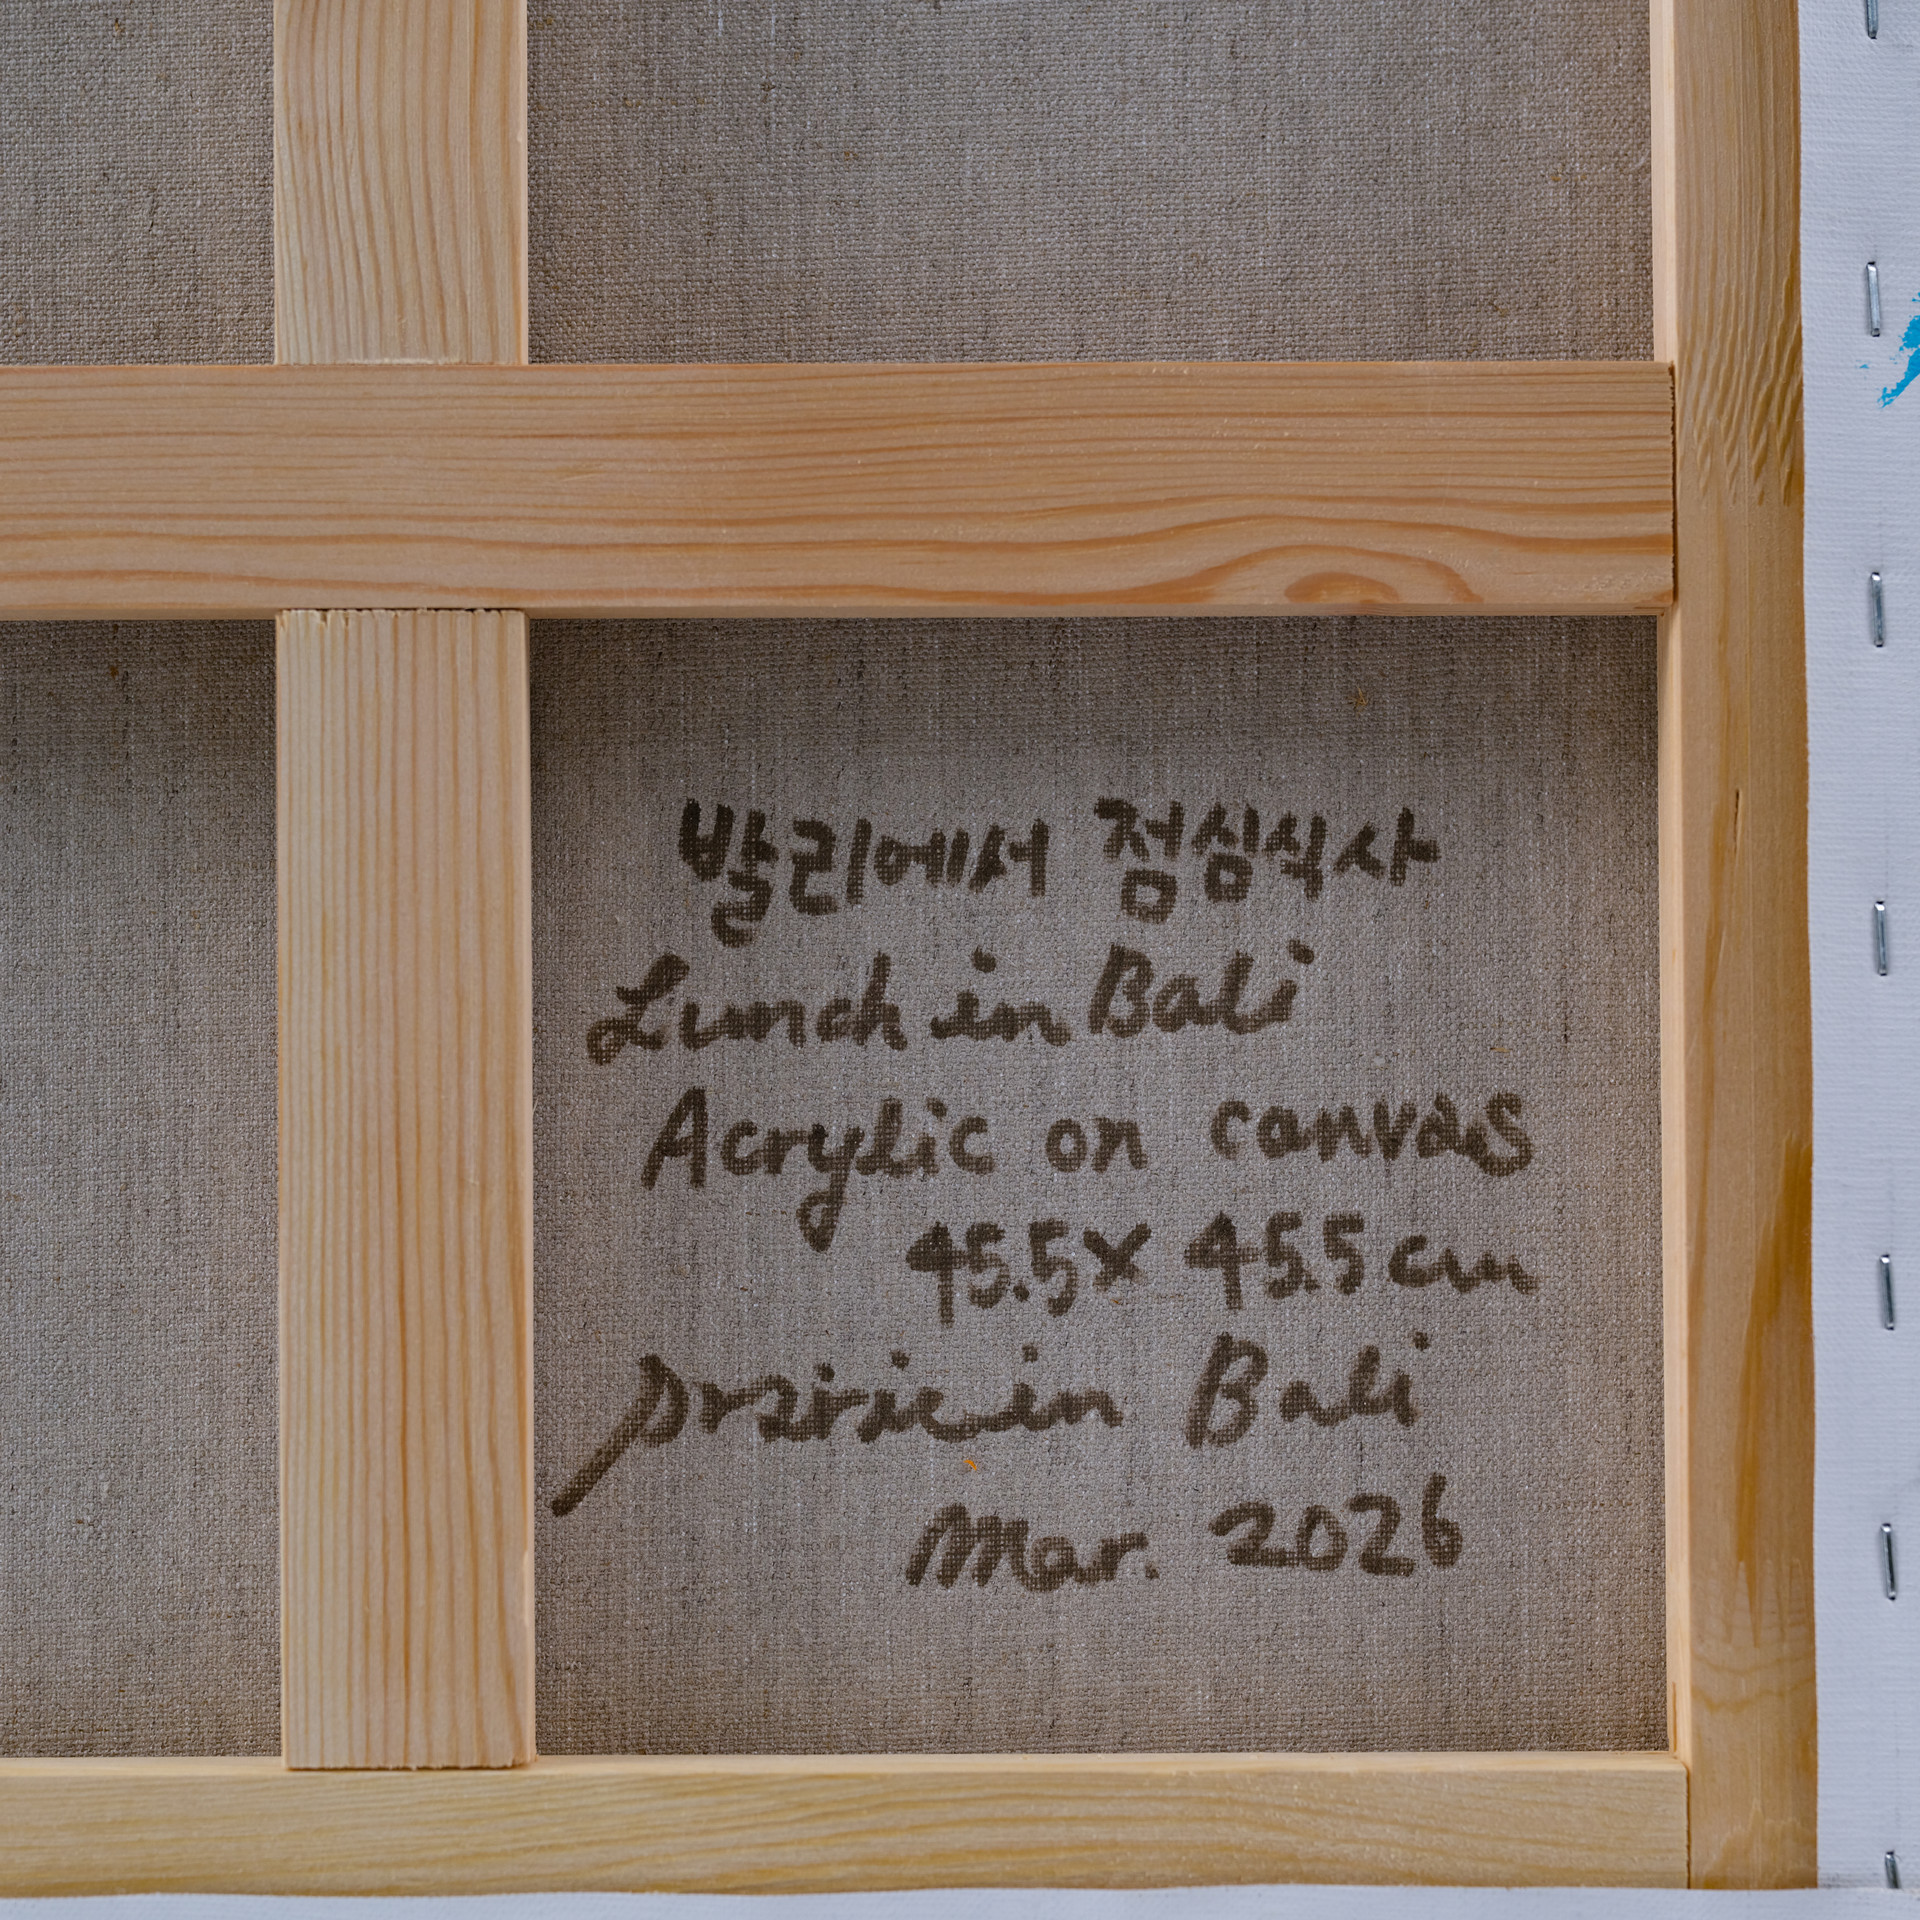 발리에서 점심식사
Lunch in Bali
Acrylic on canvas
45.5 x 45.5 cm
prairie in Bali
Mar. 2026